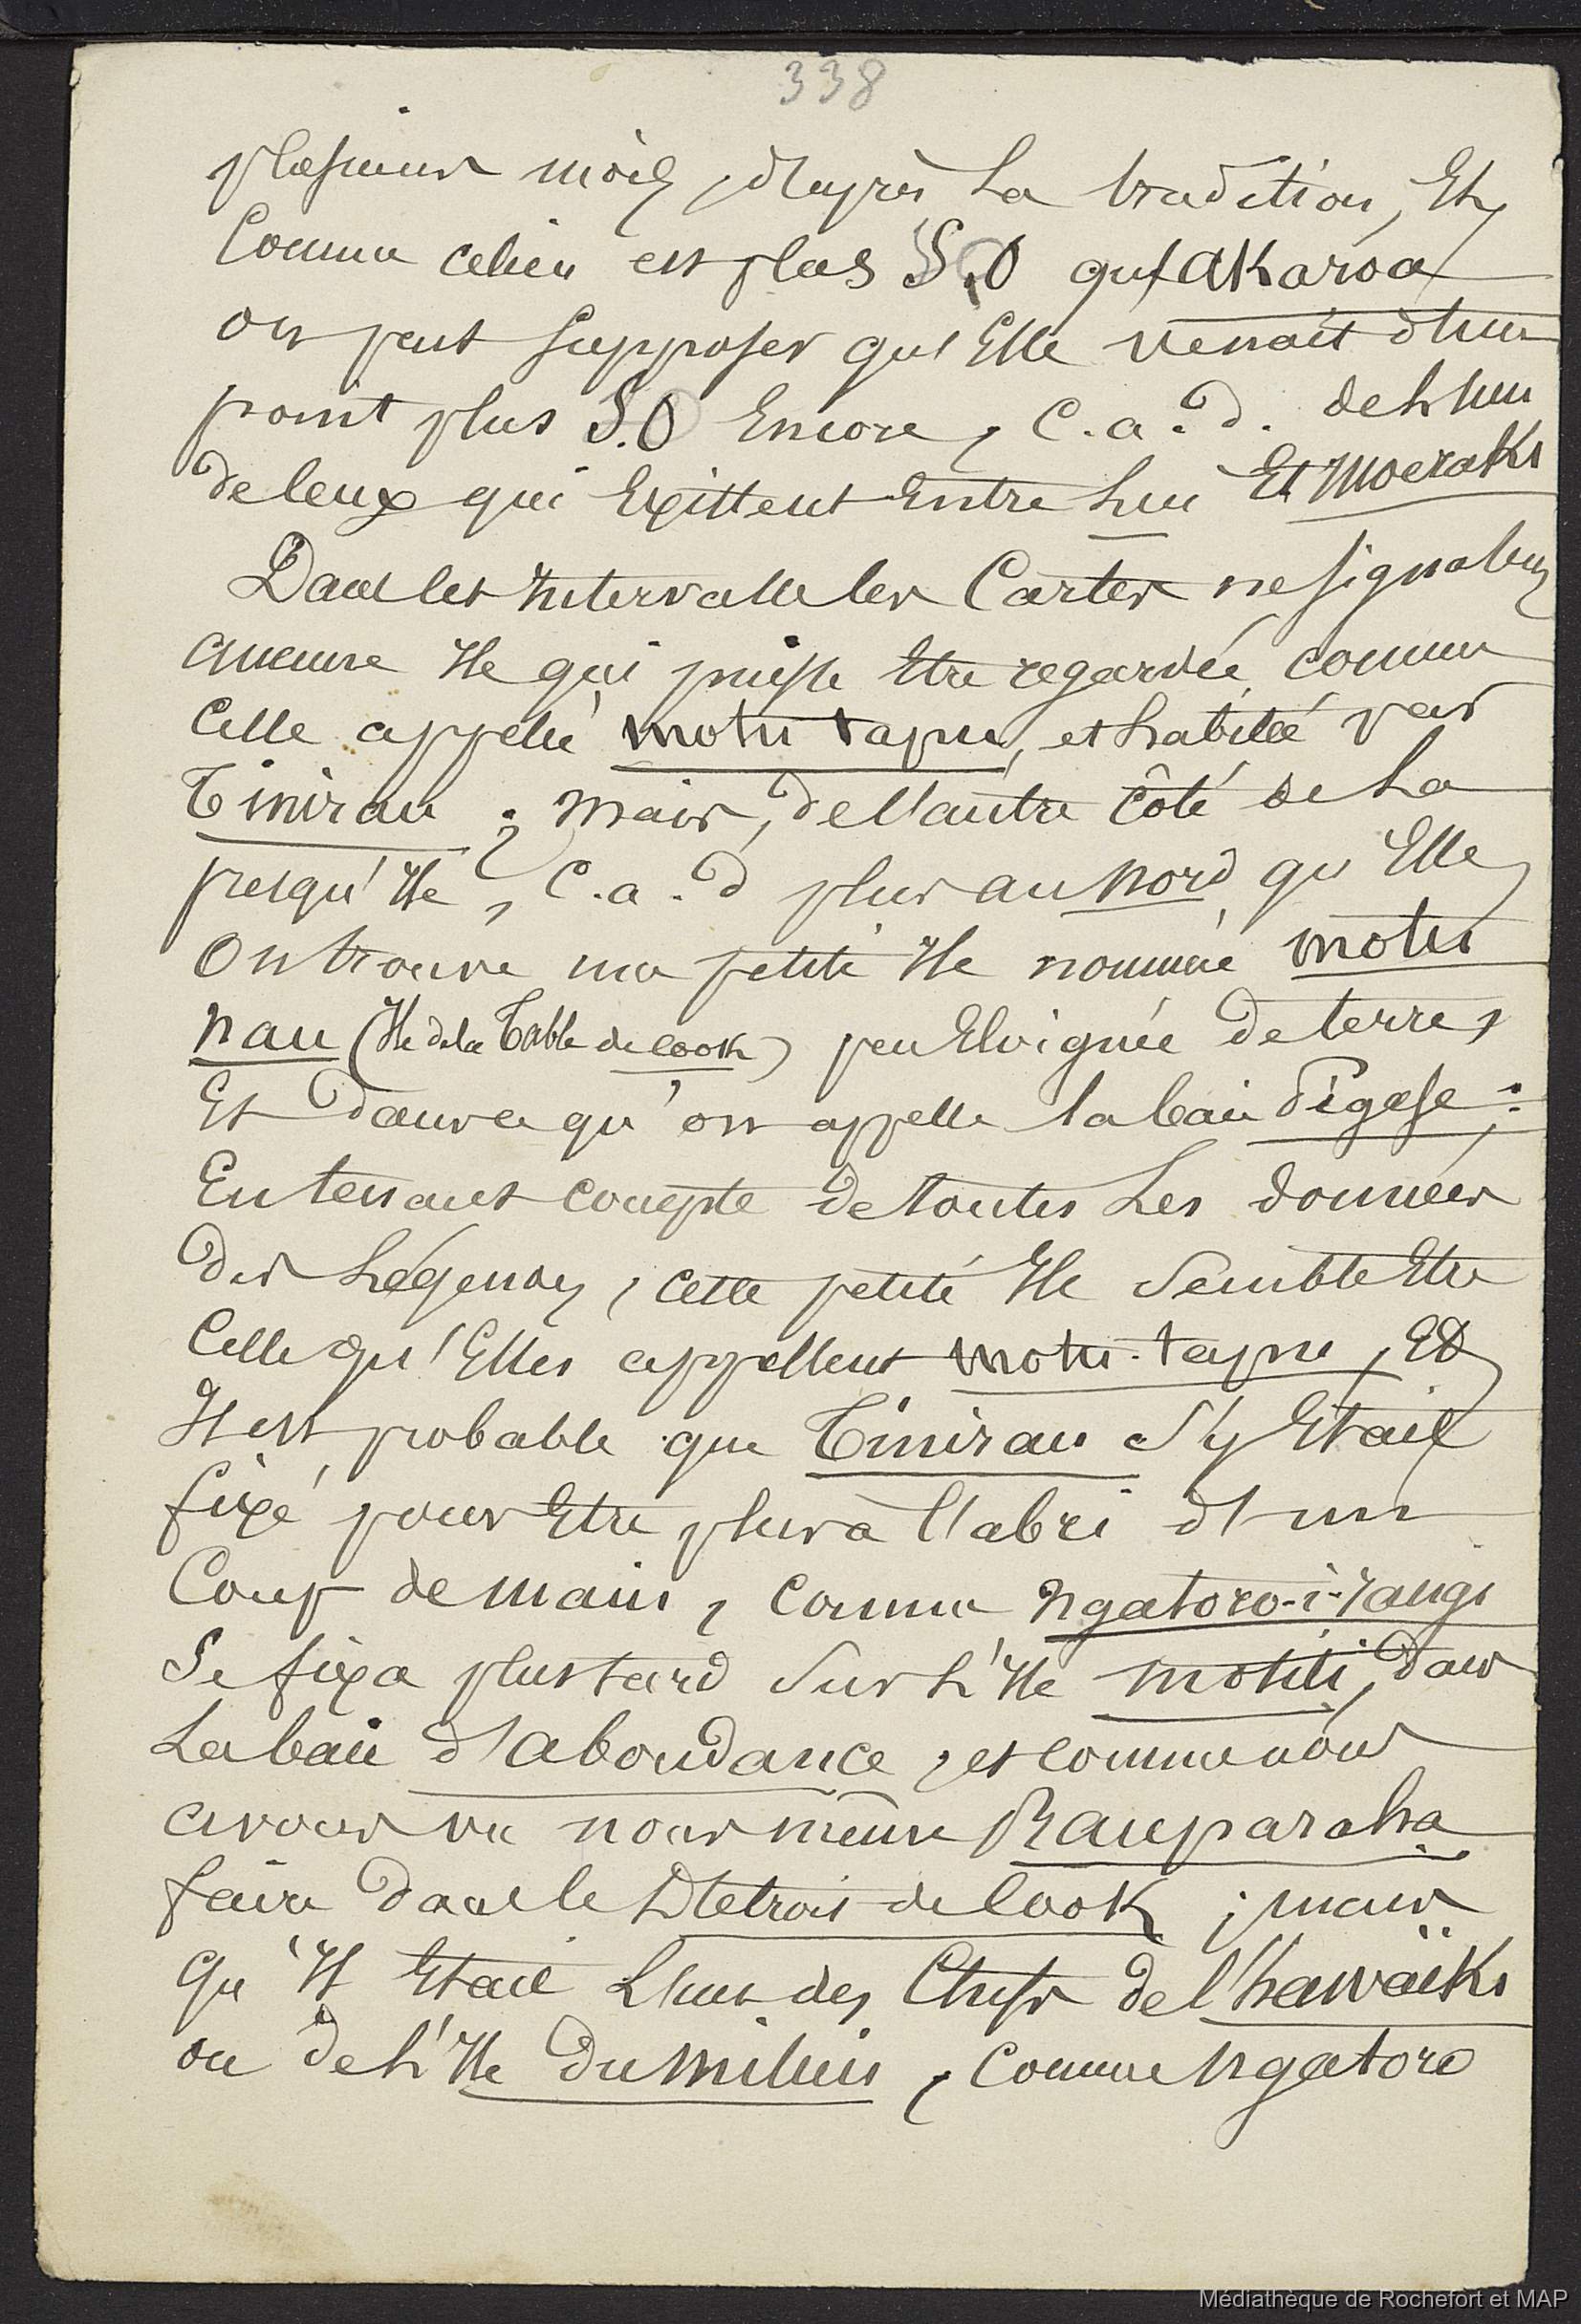 338
plusieurs mois, d'après la tradition, Et
Comme ce lieu est plus S.O qu'Akaroa
on peut supposer qu'Elle venait d'un
point plus S.O Encore, C.a.d. de l'un
de ceux qui Existent Entre lui Et Moeraki
Dans cet Intervalle les Cartes ne signalent
aucune Ile qui puisse Etre regardée comme
Celle appelée motu tapu, et habitée par
Tinirau ; mais, de l'autre côté de la
presqu'Ile, C.a.d plus au nord qu'Elle,
On trouve une petite Ile nommée motu
nau (Ile de la Table de Cook) peu Eloignée de terre,
Et dans ce qu'on appelle la baie Pégase ;
En tenant compte de toutes les données
des légendes, cette petite Ile semble Etre
Celle qu'Elles appellent motu-tapu, Et
Il est probable que Tinirau s'y Etait
fixé pour Etre plus à l'abri d'un
Coup de main, comme ngatoro-i-rangi
Se fixa plus tard sur l'Ile motiti, dans
la baie d'abondance, et comme nous
avons vu nous même Rauparaha
faire dans le Détroit de Cook ; mais
qu'Il Etait l'un des Chefs de l'hawaïki
ou de l'Ile du milieu, comme Ngatoro
Médiathèque de Rochefort et MAP